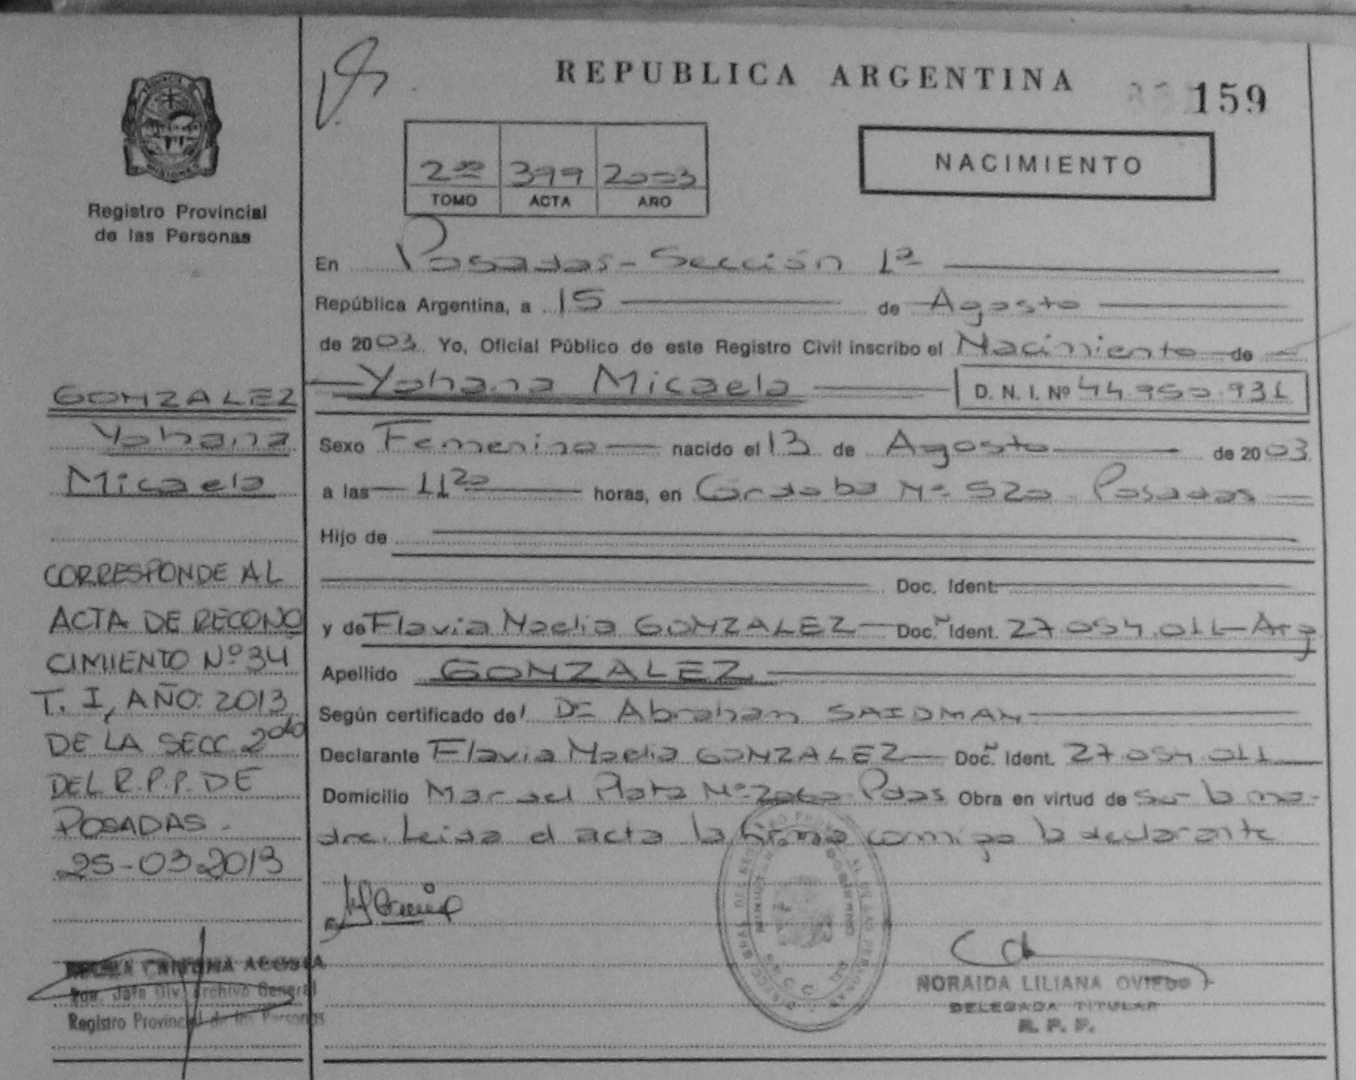 REPUBLICA ARGENTINA
159
NACIMIENTO
2do 399 2003
TOMO ACTA AÑO
Registro Provincial
de las Personas
En Posadas - Sección 1ª
República Argentina, a 15 de Agosto
de 2003. Yo, Oficial Público de este Registro Civil inscribo el Nacimiento de
Yohana Micaela D. N. I. Nº 44.950.931
Sexo Femenino nacido el 13 de Agosto de 2003
a las 11 20 horas, en Córdoba Nº 520 - Posadas
Hijo de
Doc. Ident.
y de Flavia Noelia GONZALEZ Doc. Nº Ident. 27.054.011 - Arg
Apellido GONZALEZ
Según certificado del Dr Abraham SAIDMAN
Declarante Flavia Noelia GONZALEZ Doc. Nº Ident. 27.054.011
Domicilio Mar del Plata Nº Pdas Obra en virtud de Ser la ma-
dre. Leida el acta la firma conmigo la declarante
GONZALEZ
Yohana
Micaela
CORRESPONDE AL
ACTA DE RECONO
CIMIENTO Nº 34
T. I, AÑO: 2013
DE LA SECC. 2da
DEL R.P.P. DE
POSADAS.-
25-03-2013
ACOSTA
Jefa Div. Archivo General
Registro Provincial de las Personas
NORAIDA LILIANA OVIEDO
DELEGADA TITULAR
R. P. P.